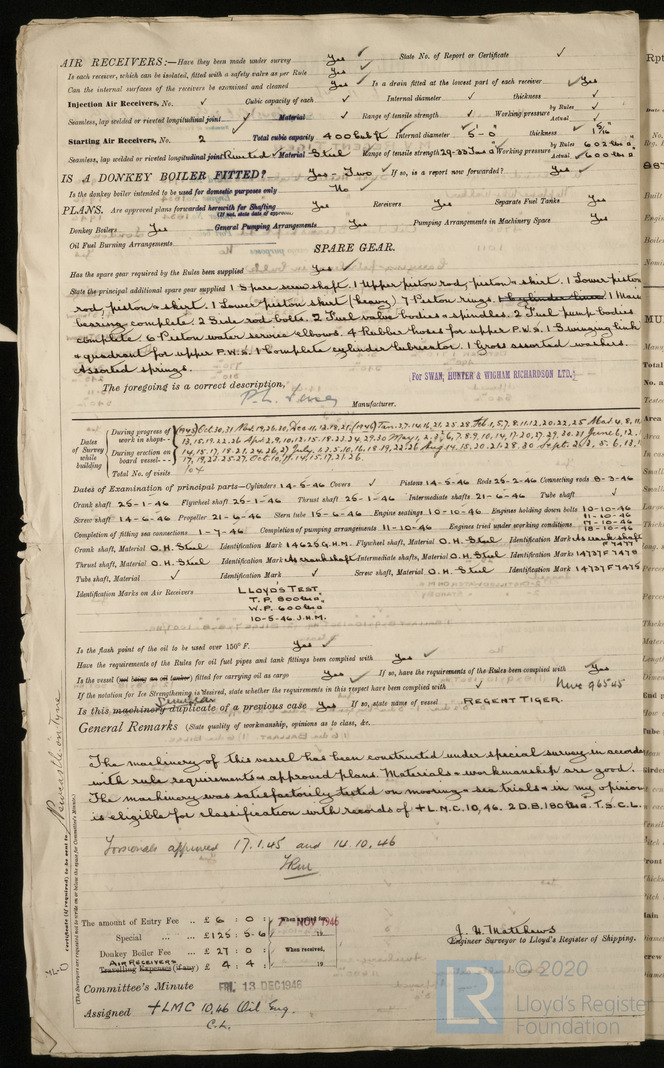 AIR RECEIVERS:—Have they been made under survey Yes ✓ State No. of Report or Certificate ✓
Is each receiver, which can be isolated, fitted with a safety valve as per Rule Yes ✓
Can the internal surfaces of the receivers be examined and cleaned Yes ✓ Is a drain fitted at the lowest part of each receiver ✓ Yes
Injection Air Receivers, No. ✓ Cubic capacity of each ✓ Internal diameter ✓ thickness ✓
Seamless, lap welded or riveted longitudinal joint ✓ Material ✓ Range of tensile strength ✓ Working pressure by Rules ✓ Actual ✓
Starting Air Receivers, No. 2 Total cubic capacity 400 cub ft Internal diameter 5'-0" thickness ✓ 1 5/16"
Seamless, lap welded or riveted longitudinal joint Riveted ✓ Material Steel Range of tensile strength 29-33 Tons □" Working pressure by Rules 602 lbs □" Actual ✓ 600 lbs □"
IS A DONKEY BOILER FITTED? Yes - Two ✓ If so, is a report now forwarded? Yes ✓
Is the donkey boiler intended to be used for domestic purposes only No ✓
PLANS. Are approved plans forwarded herewith for Shafting Yes Receivers Yes Separate Fuel Tanks Yes
(If not, state date of approval)
Donkey Boilers Yes General Pumping Arrangements Yes Pumping Arrangements in Machinery Space Yes
Oil Fuel Burning Arrangements
SPARE GEAR.
Has the spare gear required by the Rules been supplied Yes ✓
State the principal additional spare gear supplied 1 Spare screw shaft. 1 Upper piston rod, piston & skirt. 1 Lower piston
rod piston & skirt. 1 Lower piston skirt (heavy) 7 Piston rings. 1 Cylinder liner 1 Main
bearing complete. 2 Side rod bolts. 2 Fuel valve bodies & spindles. 2 Fuel pump bodies
complete. 6 Piston water service elbows. 4 Rubber hoses for upper P.W.S. 1 Swinging link
& quadrant for upper P.W.S. 1 Complete cylinder lubricator. 1 Gross assorted washers.
Assorted springs.
(For SWAN, HUNTER & WIGHAM RICHARDSON LTD.)
The foregoing is a correct description,
Manufacturer.
Dates of Survey while building
During progress of work in shops - - (1945) Oct. 30, 31 Nov. 19, 26, 30, Dec. 11, 12, 18, 21, (1946) Jan. 3, 7, 14, 16, 21, 25, 28 Feb 1, 5, 7, 8, 11, 12, 20, 22, 25 Mar. 4, 8, 11
13, 15, 19, 22, 26 Apr. 2, 9, 10, 12, 15, 18, 23, 24, 29, 30 May 1, 2, 3, 6, 7, 8, 9, 10, 14, 17, 20, 27, 29, 30, 31 June 6, 12,
During erection on board vessel - - - 14, 15, 17, 18, 21, 24, 26, 27 July 1, 2, 5, 10, 16, 18, 19, 22, 26 Aug 14, 15, 20, 21, 28, 30 Sept. 2, 3, 5, 6, 13,
17, 19, 23, 25, 27, Oct. 10, 11, 14, 15, 17, 21, 26.
Total No. of visits 104
Dates of Examination of principal parts—Cylinders 14-5-46 Covers ✓ Pistons 14-5-46 Rods 25-2-46 Connecting rods 8-3-46
Crank shaft 25-1-46 Flywheel shaft 25-1-46 Thrust shaft 25-1-46 Intermediate shafts 21-6-46 Tube shaft ✓
Screw shaft 14-6-46 Propeller 21-6-46 Stern tube 15-6-46 Engine seatings 10-10-46 Engines holding down bolts 10-10-46 11-10-46
Completion of fitting sea connections 1-7-46 Completion of pumping arrangements 11-10-46 Engines tried under working conditions 17-10-46 18-10-46
Crank shaft, Material O.H. Steel Identification Mark 14625 G.H.M. Flywheel shaft, Material O.H. Steel Identification Mark As crankshaft
Thrust shaft, Material O.H. Steel Identification Mark As crankshaft Intermediate shafts, Material O.H. Steel Identification Marks 14737 F 7477 F 7478
Tube shaft, Material ✓ Identification Mark ✓ Screw shaft, Material O.H. Steel Identification Mark 14737 F 7475
Identification Marks on Air Receivers LLOYDS TEST
T.P. 900 lbs □"
W.P. 600 lbs □"
10-5-46 J.H.M.
Is the flash point of the oil to be used over 150° F. Yes ✓
Have the requirements of the Rules for oil fuel pipes and tank fittings been complied with Yes ✓
Is the vessel (not being an oil tanker) fitted for carrying oil as cargo Yes ✓ If so, have the requirements of the Rules been complied with ✓ Yes
If the notation for Ice Strengthening is desired, state whether the requirements in this respect have been complied with ✓ Nwc 96545
Is this machinery Similar duplicate of a previous case Yes If so, state name of vessel REGENT TIGER.
General Remarks (State quality of workmanship, opinions as to class, &c.
The machinery of this vessel has been constructed under special survey in accorda
with rule requirements & approved plans. Materials & workmanship are good.
The machinery was satisfactorily tested on mooring & sea trials & in my opinion
is eligible for classification with records of +L.M.C. 10,46. 2 D.B. 180 lbs. T.S. C.L.
Torsionals approved 17.1.45 and 14.10.46
The amount of Entry Fee .. £ 6 : 0 : When applied for, 7 NOV 1946
Special ... ... £ 125 : 5-6 :
Donkey Boiler Fee ... £ 27 : 0 : When received,
AIR RECEIVERS
Travelling Expenses (if any) £ 4 : 4 : 19
J. H. Matthews
Engineer Surveyor to Lloyd's Register of Shipping.
Committee's Minute FRI. 13 DEC 1946
Assigned +LMC 10,46 Oil Eng.
C.L.
Newcastle on Tyne
Certificate (if required) to be sent to
(The Surveyors are requested not to write on or below the space for Committee's Minute.)
© 2020
Lloyd's Register
Foundation
LR